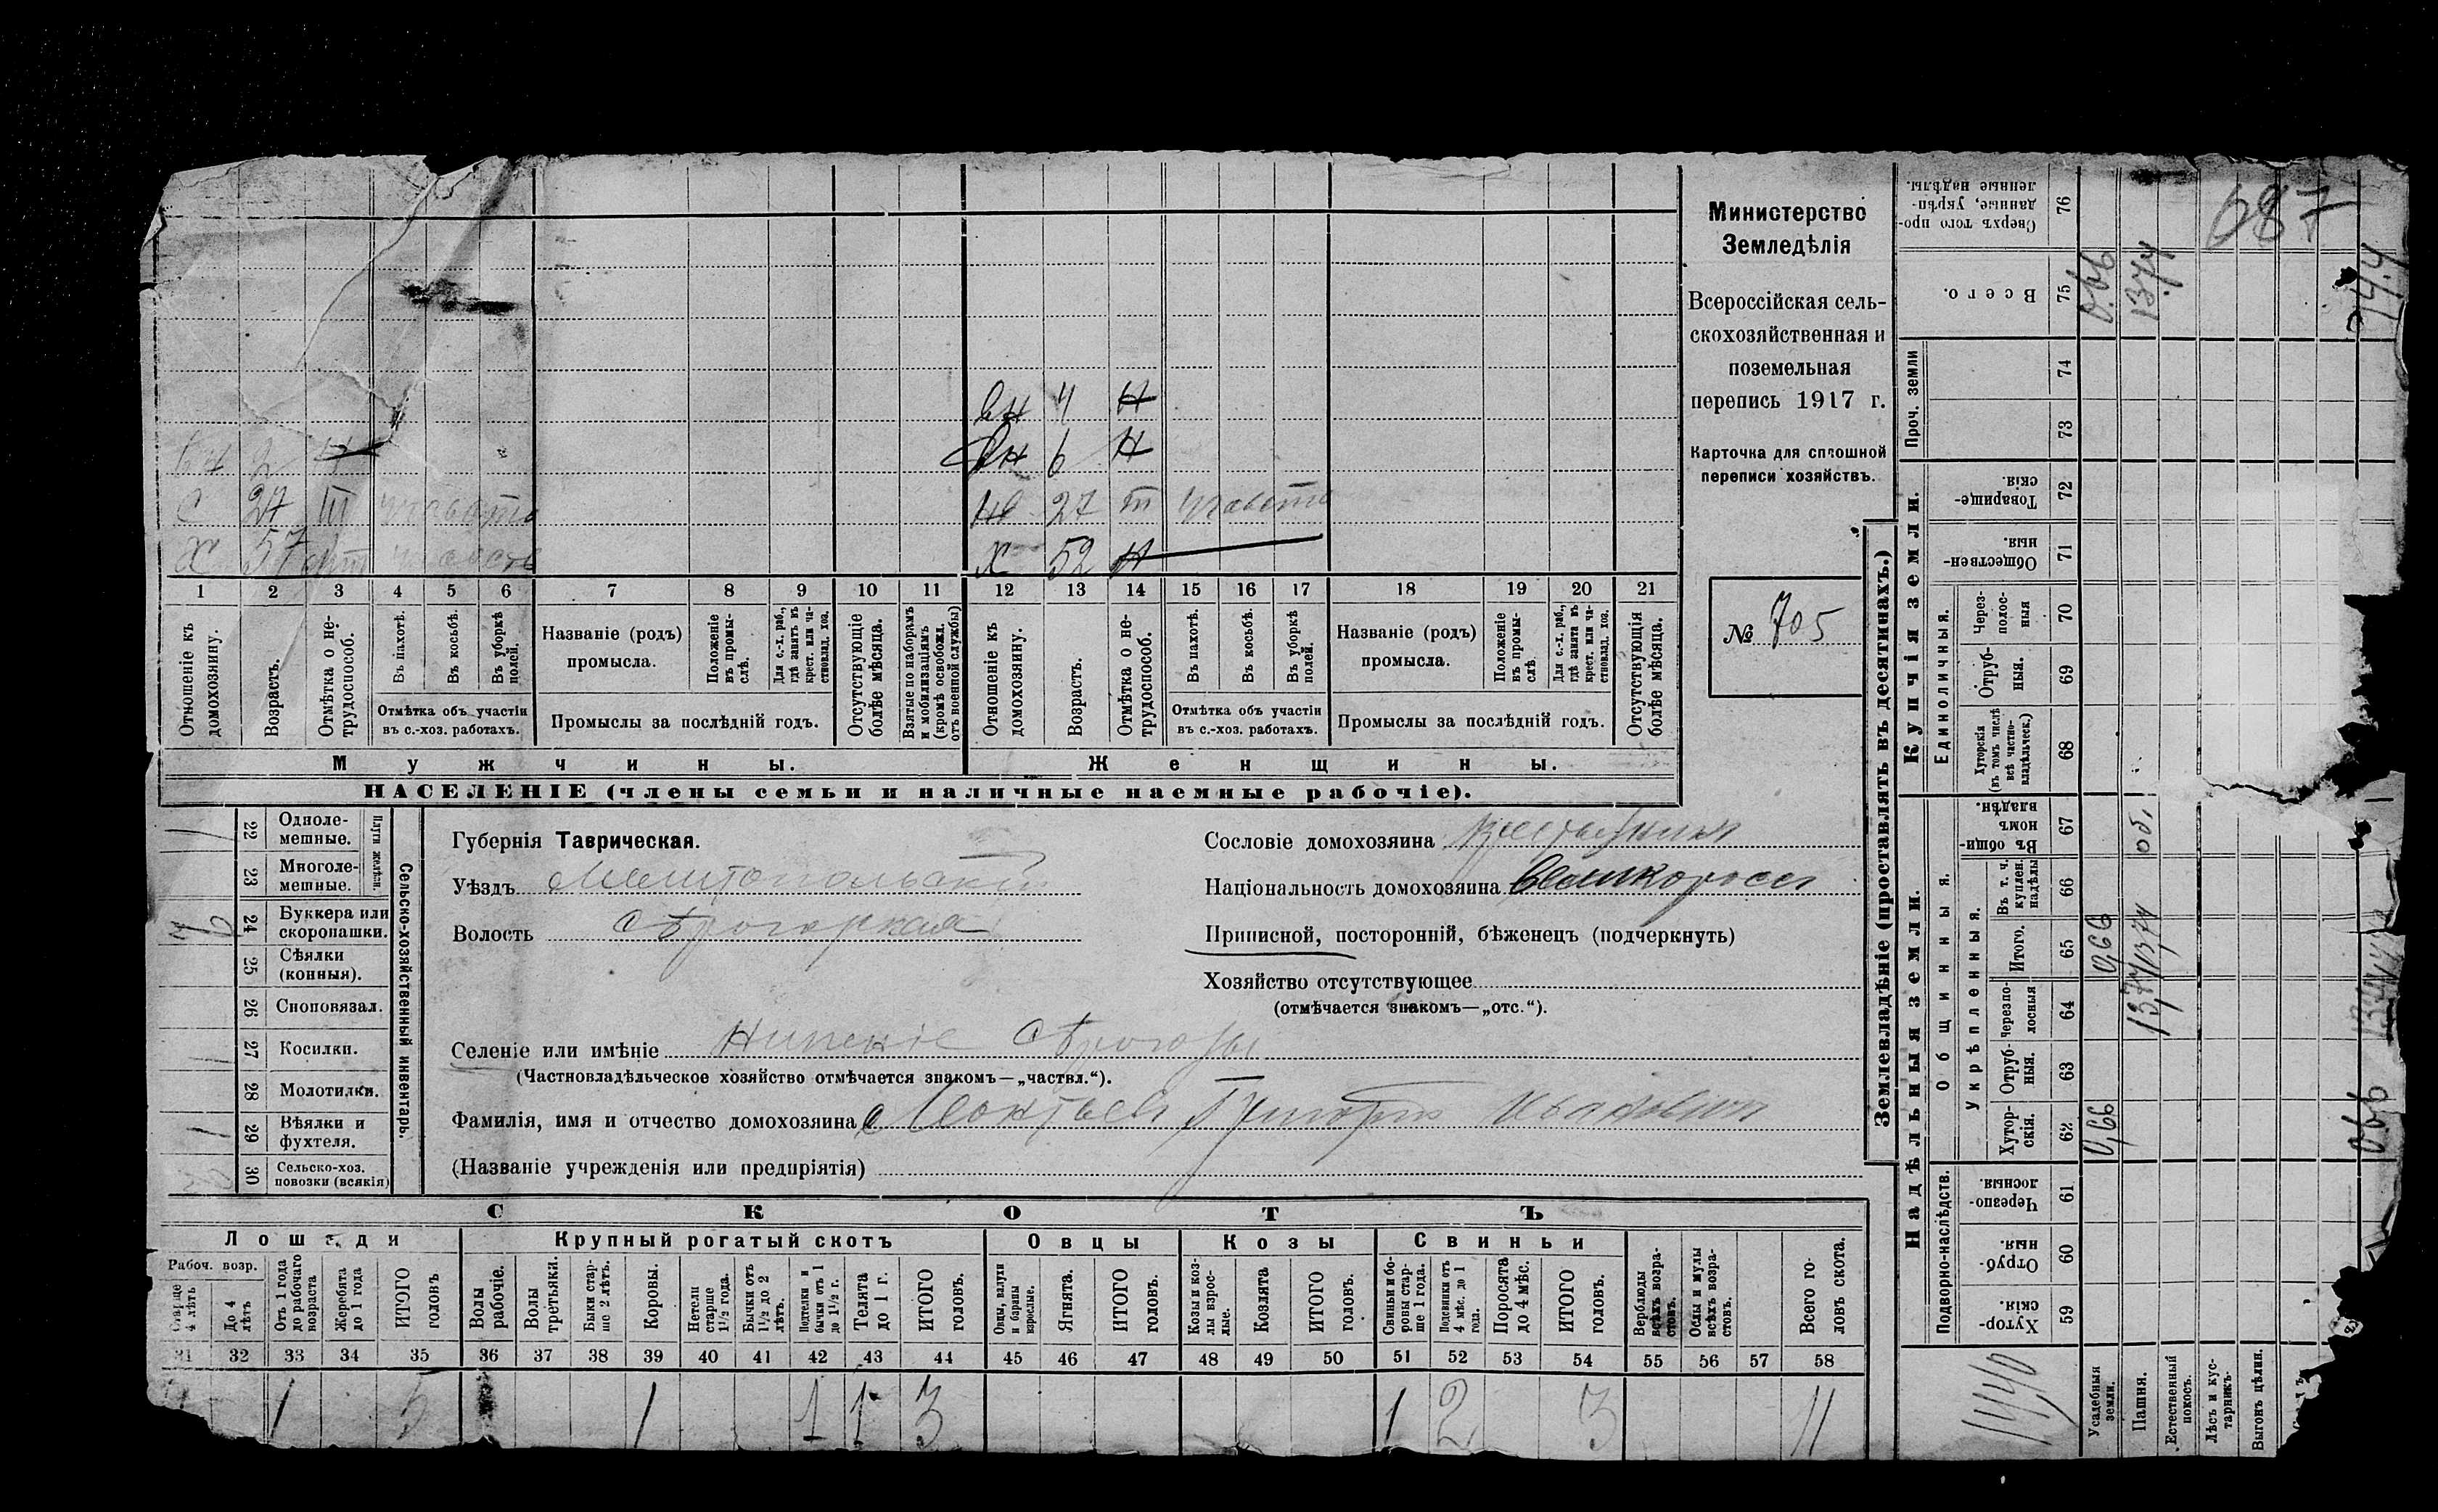 вн 4 Н
вн 6 Н
вн 2 Н
С 27 III участв
нв 27 III участв
Х 57
Х 52 Н
1 2 3 4 5 6 7 8 9 10 11 12 13 14 15 16 17 18 19 20 21
Отношеніе къ домохозяину.
Возрастъ.
Отмѣтка о не-трудоспособ.
Въ пахотѣ.
Въ косьбѣ.
Въ уборкѣ полей.
Отмѣтка объ участіи
въ с.-хоз. работахъ.
Названіе (родъ)
промысла.
Положеніе въ промы-слѣ.
Для с.-х. раб., гдѣ занятъ въ крест. или ча-стновлад. хоз.
Промыслы за послѣдній годъ.
Отсутствующіе болѣе мѣсяца.
Взятые по наборамъ и мобилизаціямъ (кромѣ освобожд. отъ военной службы)
Отношеніе къ домохозяину.
Возрастъ.
Отмѣтка о не-трудоспособ.
Въ пахотѣ.
Въ косьбѣ.
Въ уборкѣ полей.
Отмѣтка объ участіи
въ с.-хоз. работахъ.
Названіе (родъ)
промысла.
Положеніе въ промы-слѣ.
Для с.-х. раб., гдѣ заняти въ крест. или ча-стновлад. хоз.
Промыслы за послѣдній годъ.
Отсутствующія болѣе мѣсяца.
Мужчины.
Женщины.
НАСЕЛЕНІЕ (члены семьи и наличные наемные рабочіе).
Министерство
Земледѣлія
Всероссійская сель-
скохозяйственная и
поземельная
перепись 1917 г.
Карточка для сплошной
переписи хозяйствъ.
№ 705
Сельско-хозяйственный инвентарь.
Плуги желѣзн.
22 Одноле-мешные.
23 Многоле-мешные.
24 Буккера или скоропашки.
25 Сѣялки (конныя).
26 Сноповязал.
27 Косилки.
28 Молотилки.
29 Вѣялки и фухтеля.
30 Сельско-хоз. повозки (всякія)
Губернія Таврическая.
Уѣздъ Мелитопольскій
Волость Сѣрогозская
Сословіе домохозяина
Національность домохозяина Великороссъ
Приписной, посторонній, бѣженецъ (подчеркнуть)
Хозяйство отсутствующее
(отмѣчается знакомъ—„отс.“).
Селеніе или имѣніе Нижніе Сѣрогозы
(Частновладѣльческое хозяйство отмѣчается знакомъ—„частвл.“).
Фамилія, имя и отчество домохозяина Леонтьевъ Григорій Ивановичъ
(Названіе учрежденія или предпріятія)
СКОТЪ
Лошади
Крупный рогатый скотъ
Овцы
Козы
Свиньи
Рабоч. возр.
Старше 4 лѣтъ
До 4 лѣтъ
Отъ 1 года до рабочаго возраста
Жеребята до 1 года
ИТОГО головъ
Волы рабочіе.
Волы третьяки.
Быки стар-ше 2 лѣтъ.
Коровы.
Нетели старше 1½ года.
Бычки отъ 1½ до 2 лѣтъ.
Подтелки и бычки отъ 1 до 1½ г.
Телята до 1 г.
ИТОГО головъ.
Овцы, валухи и бараны взрослые.
Ягнята.
ИТОГО головъ.
Козы и коз-лы взрос-лые.
Козлята
ИТОГО головъ.
Свиньи и бо-ровы стар-ше 1 года.
Подсвинки отъ 4 мѣс. до 1 года.
Поросята до 4 мѣс.
ИТОГО головъ.
Верблюды всѣхъ возра-стовъ.
Ослы и мулы всѣхъ возра-стовъ.
Всего го-ловъ скота.
31 32 33 34 35 36 37 38 39 40 41 42 43 44 45 46 47 48 49 50 51 52 53 54 55 56 57 58
1 5 1 1 1 3 1 2 3 11
Землевладѣніе (проставлять въ десятинахъ.)
Надѣльныя земли.
Купчія земли.
Проч. земли
Подворно-наслѣдств.
Общинныя.
Укрѣпленныя.
Единоличныя.
Хутор-скія. 59
Отруб-ныя. 60
Черезпо-лосныя. 61
Хутор-скія. 62
Отруб-ныя. 63
Черезпо-лосныя 64
Итого. 65
Въ т. ч. куплен. надѣлы 66
Въ общи-номъ владѣн. 67
Хуторскія (въ томъ числѣ всѣ частно-владѣльческ.) 68
Отруб-ныя. 69
Через-полос-ныя 70
Обществен-ныя. 71
Товарище-скія. 72
73
74
Всего. 75
Сверхъ того про-данные, укрѣп-ленные надѣлы. 76
Усадебныя земли.
0,66 0,66 0,66
Пашня.
13,74 13,74 об. 13,74
Естественный покосъ.
Лѣсъ и кус-тарникъ.
Выгонъ цѣлин.
0,66
14,40
687